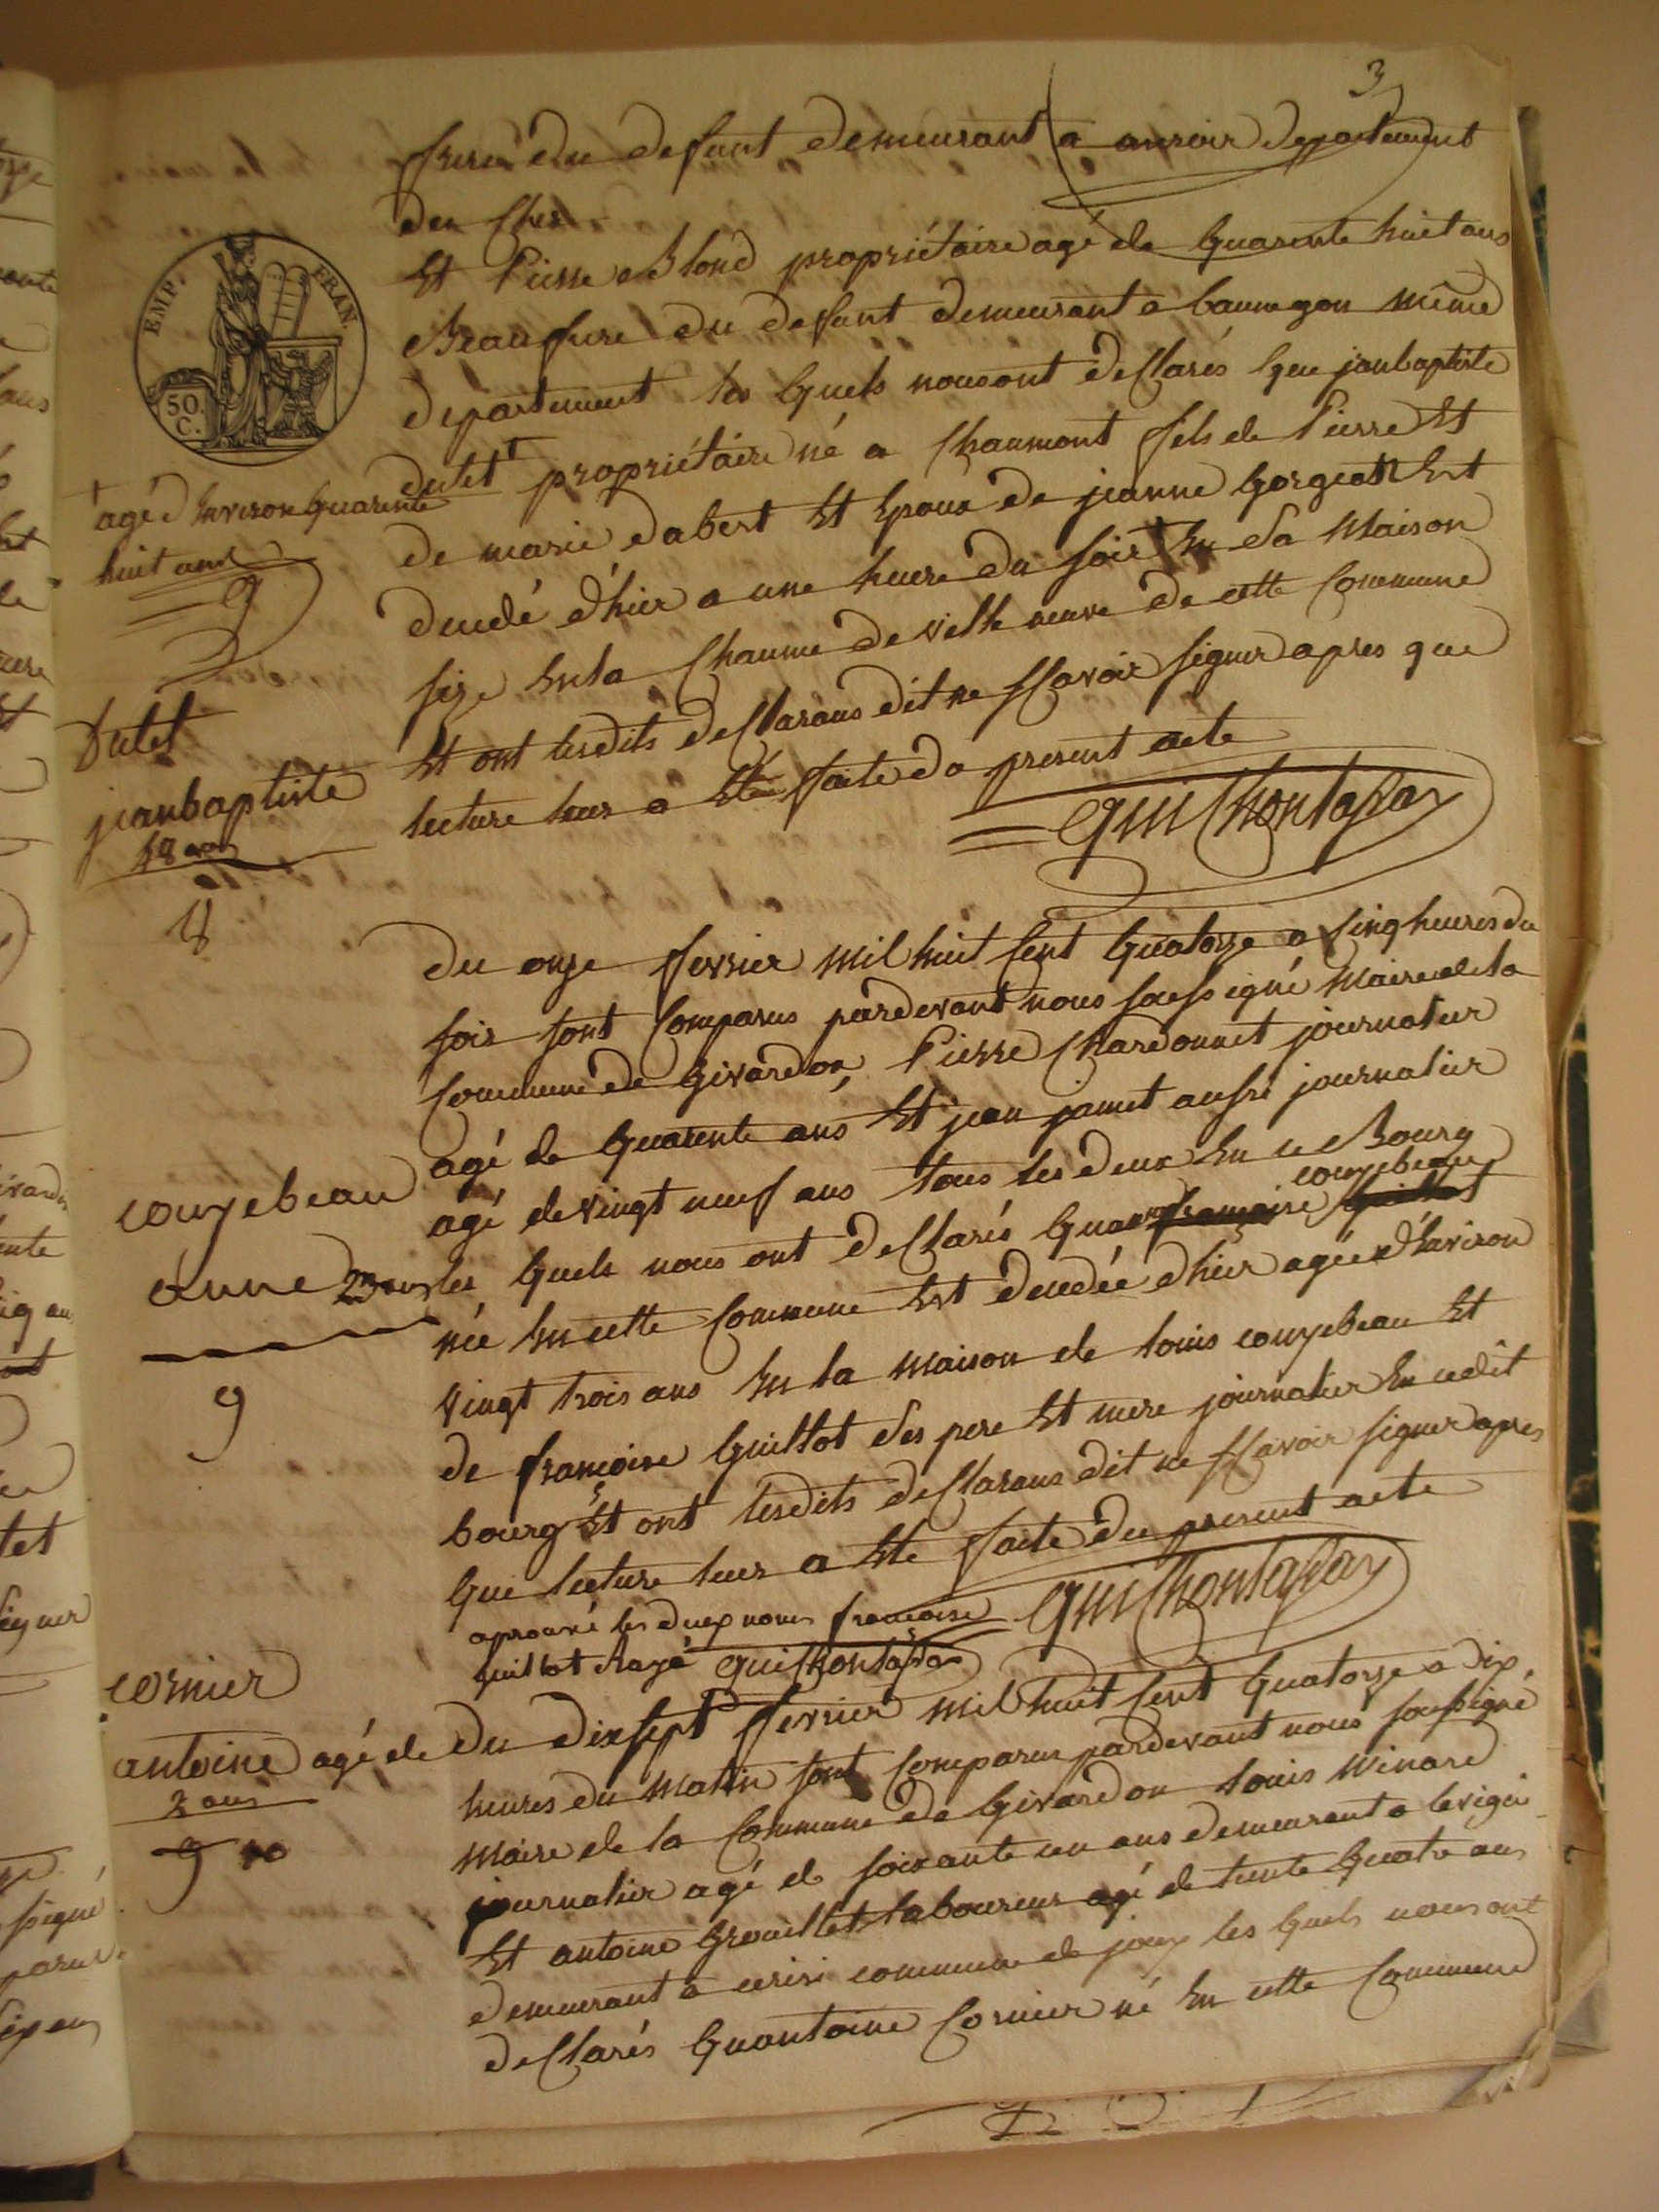 3
frere du defunt demeurant a auroir departement
du Cher
Et Pierre Blond propriétaire agé de quarente huit ans
Beaufrere du defunt demeurant a baumegon même
departement les quels nous ont desclarés que jeanbaptiste
dutet propriétaire né a Chaumont fils de Pierre Et
de marie dabert Et Epoux de jeanne gorgeon Est
deucdé d'hier a une heure du soir En sa Maison
size En la Chaume de villeneuve de cette Commune
Et ont lesdits desclarans dit ne sçavoir signer apres que
lecture leur a Eté faite du present acte
EMP. FRAN.
50.
C.
agé d'Environ quarente
huit ans
Dutet
jeanbaptiste
48 ans
8
Du onze fevrier mil huit cent quatorze a cinq heures du
soir sont Comparus pardevant nous soussigné Maire de la
Commune de givardon Pierre Chardonnet journalier
agé de quarente ans Et jean jamet aussi journalier
agé de vingt neuf ans tous les deux En ce Bourg
couzebeau
les quels nous ont desclarés
née En cette Commune Est deucdée d'hier agée d'Environ
vingt trois ans En la maison de louis couzebeau Et
de françoise guillot ses pere Et mere journalier En cedit
bourg Et ont lesdits desclarans dit ne sçavoir signer apres
que lecture leur a Eté faite du present acte
aprouvé les deux noms françoise
guillot rayé
couzebeau
anne 23 ans
9
cornier
antoine agé de
2 ans
10
Du dixsept fevrier mil huit cent quatorze a dix
heures du matin sont Comparus pardevant nous soussigné
Maire de la Commune de givardon louis Minard
journalier agé de soixante un ans demeurant a
Et antoine grouillet laboureur agé de trente quatre ans
demeurant a cerisi commune de jouy les quels nous ont
desclarés qu'antoine Cornier né En cette Commune